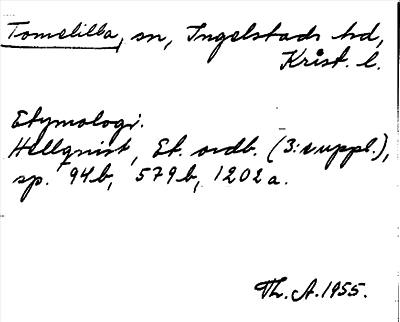 Tomelilla, sn, Ingelstads hd,
Krist. l.
Etymologi.
Hellquist, Et. ordb. (3:suppl.),
sp. 94b, 579b, 1202a.
Th. A. 1955.